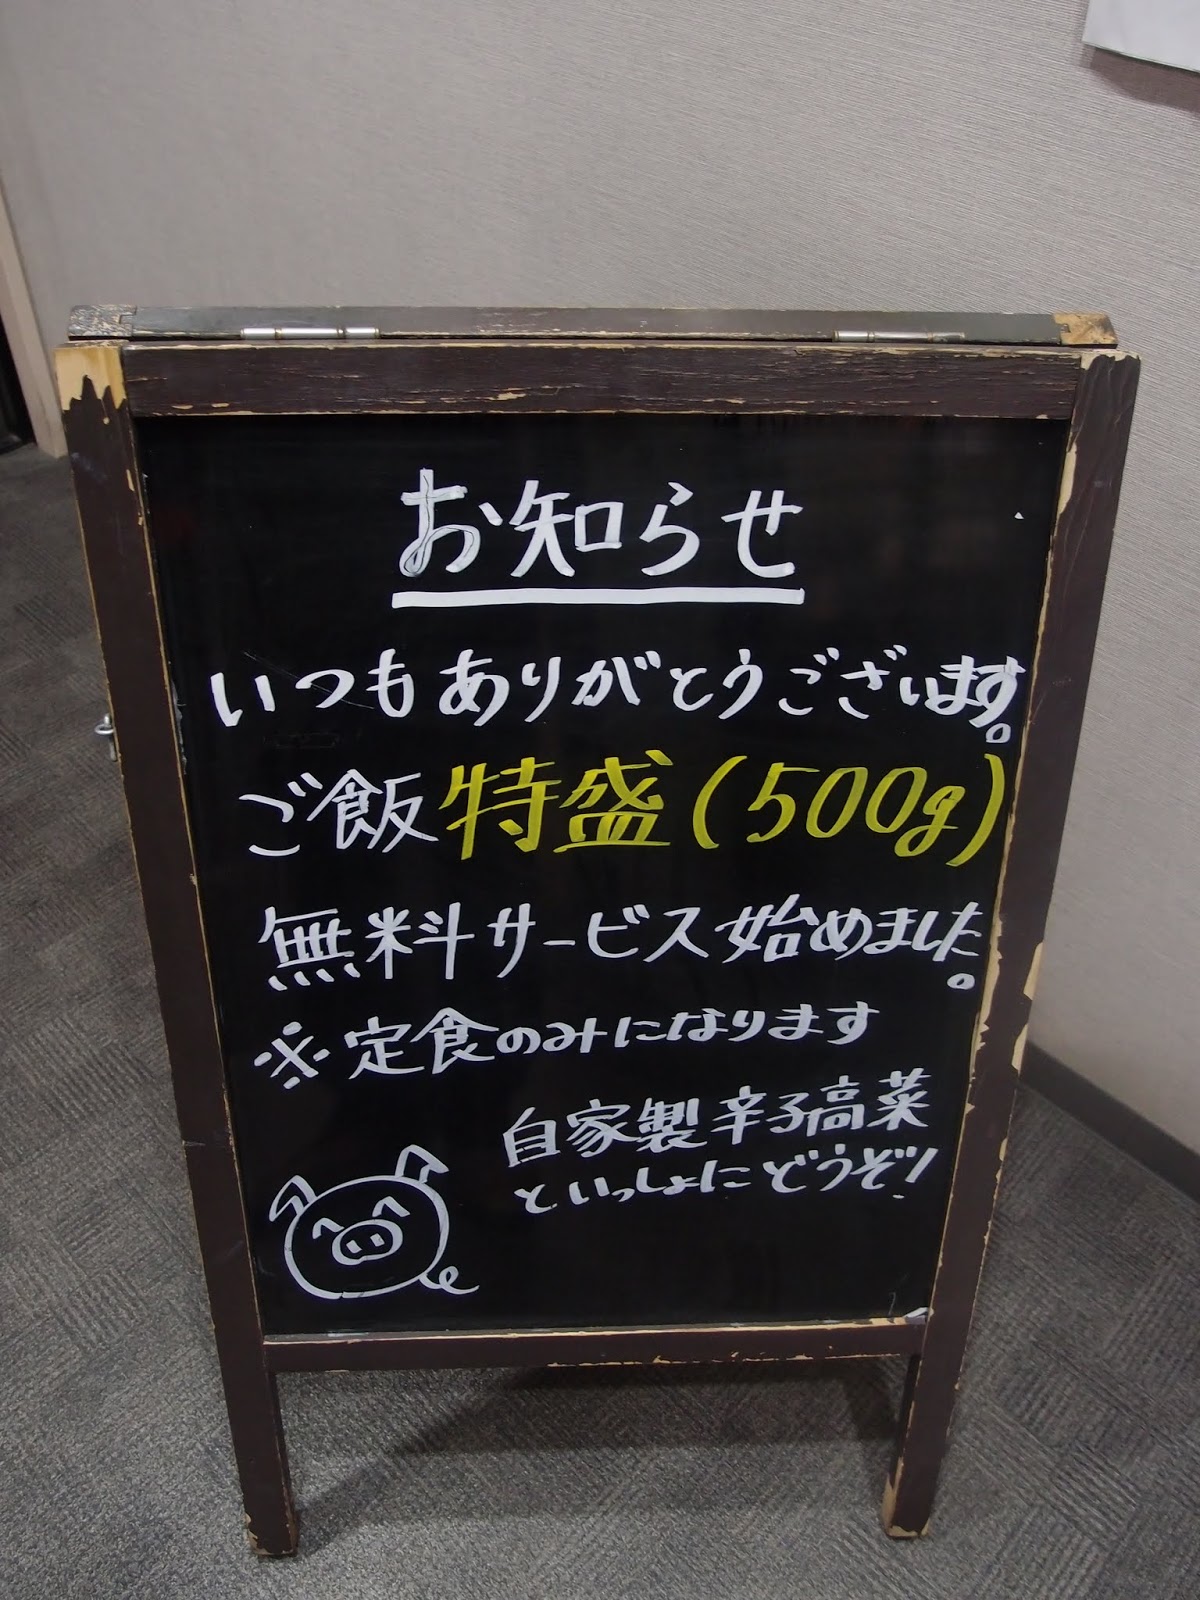 お知らせ
いつもありがとうございます。
ご飯特盛(500g)
無料サービス始めました。
※定食のみになります
自家製辛子高菜
といっしょにどうぞ!